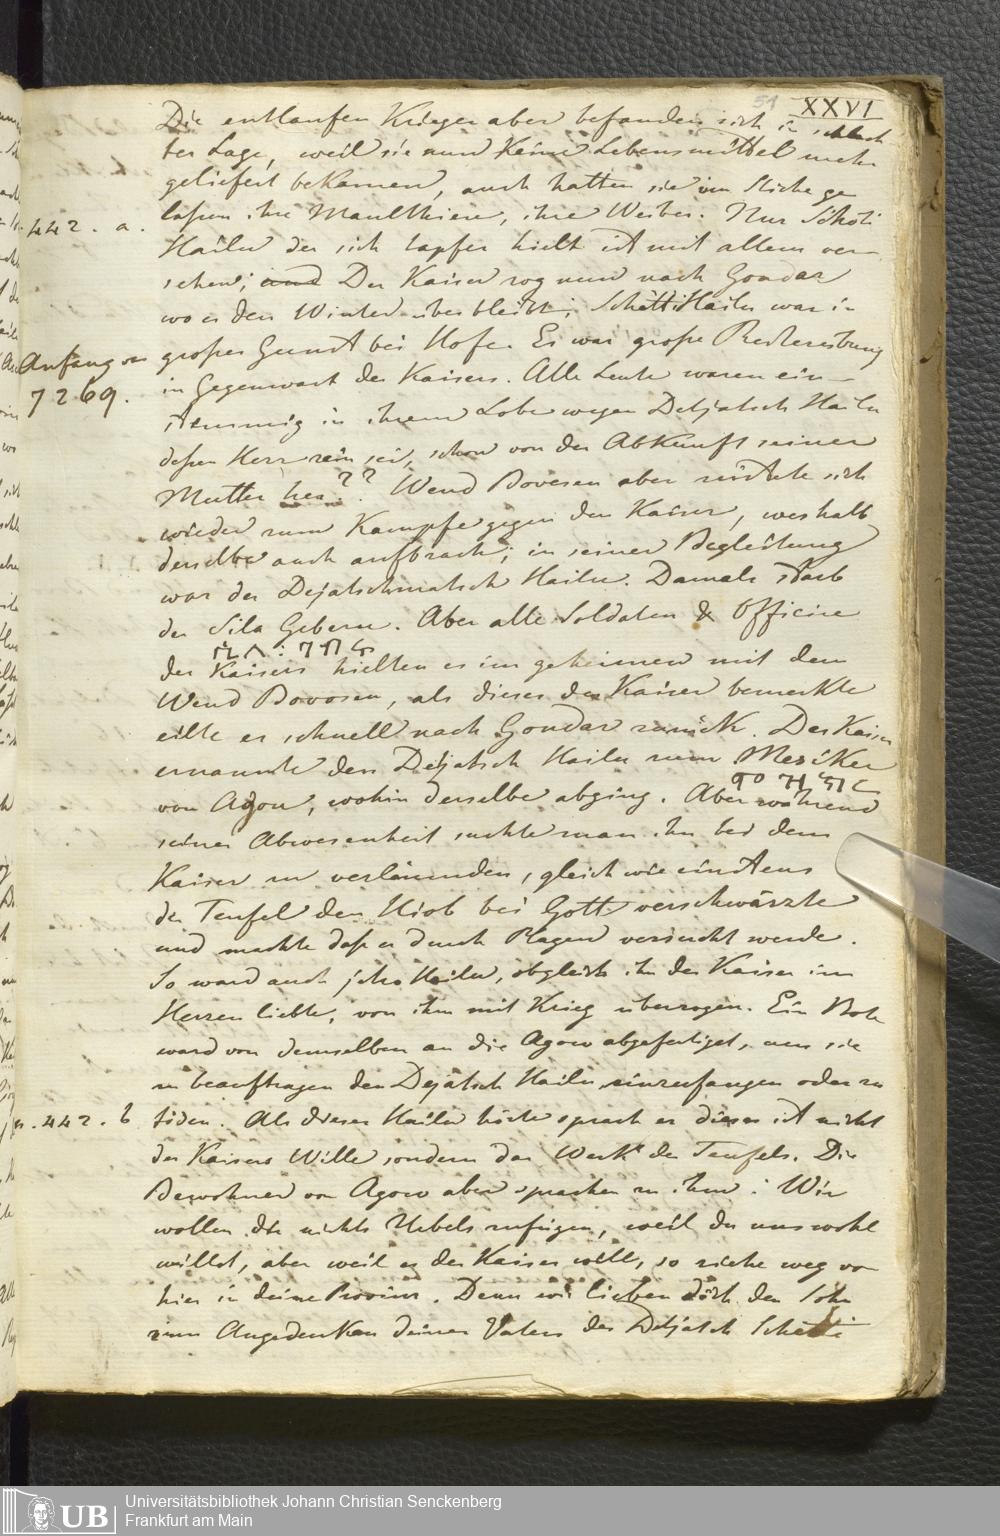 51 XXVI
Die entlaufen Krieger aber befanden sich in schlech
ter Lage, weil sie nun Keine Lebensmittel mehr
geliefert beKamen, auch hatten sie im Stiche ge
laßen ihre Maulthiere, ihre Weiber. Nur Schöti
442. a.
Hailu der sich tapfer hielt ist mit allem ver-
sehen; und Der Kaiser zog nun nach Gondar
wo er den Winter über bleibt; Schetti Hailu war in
großer Gunst bei Hofe. Es war große
Anfang von
7269.
in Gegenwart des Kaisers. Alle Leute waren ein-
stimmig in ihrem Lobe wegen Detjatsch Hailu
deßen Herr rein sei, schon von der AbKunft seiner
Mutter her?? Wend Bovesen aber rüstete sich
wieder zum Kampfe gegen den Kaiser, weshalb
derselbe auch aufbrach; in seiner Begleitung
war der Dejatschmatsch Hailu. Damals starb
der Sila Geberu. Aber alle Soldaten & Officire
ሲላ፡ ገብሩ
des Kaisers hielten es im geheimen mit dem
Wend Bovosen, als dieses der Kaiser bemerkte
eilte er schnell nach Gondar zurück. Der Kaiser
ernannte den Dejatsch Hailu zum MesiKer
መዝክር
von Agou, wohin derselbe abging. Aber während
seiner Abwesenheit suchte man ihn bei dem
Kaiser zu verläumden, gleich wie einstens
der Teufel den Hiob bei Gott verschwärzte
und machte daß er durch Plagen versucht werde.
So ward auch jetzo Hailu, obgleich ihn der Kaiser im
Herzen liebte, von ihm mit Krieg überzogen. Ein Bote
ward von demselben an die Agow abgefertiget, um sie
zu beauftragen den Dejatsch Hailu einzufangen oder zu
442. b
töden. Als dieses Hailu hörte sprach er dieses ist nicht
des Kaisers Wille sondern das Werk des Teufels. Die
Bewohner von Agow aber sprachen zu ihm: Wir
wollen dir nichts Uebels zufügen, weil du uns wohl
willst, aber weil es der Kaiser will, so ziehe weg von
hier in deine Provinz. Denn wir lieben dich den Sohn
zum AngedenKen deines Vaters des Detjatsch Schetti
UB Universitätsbibliothek Johann Christian Senckenberg
Frankfurt am Main